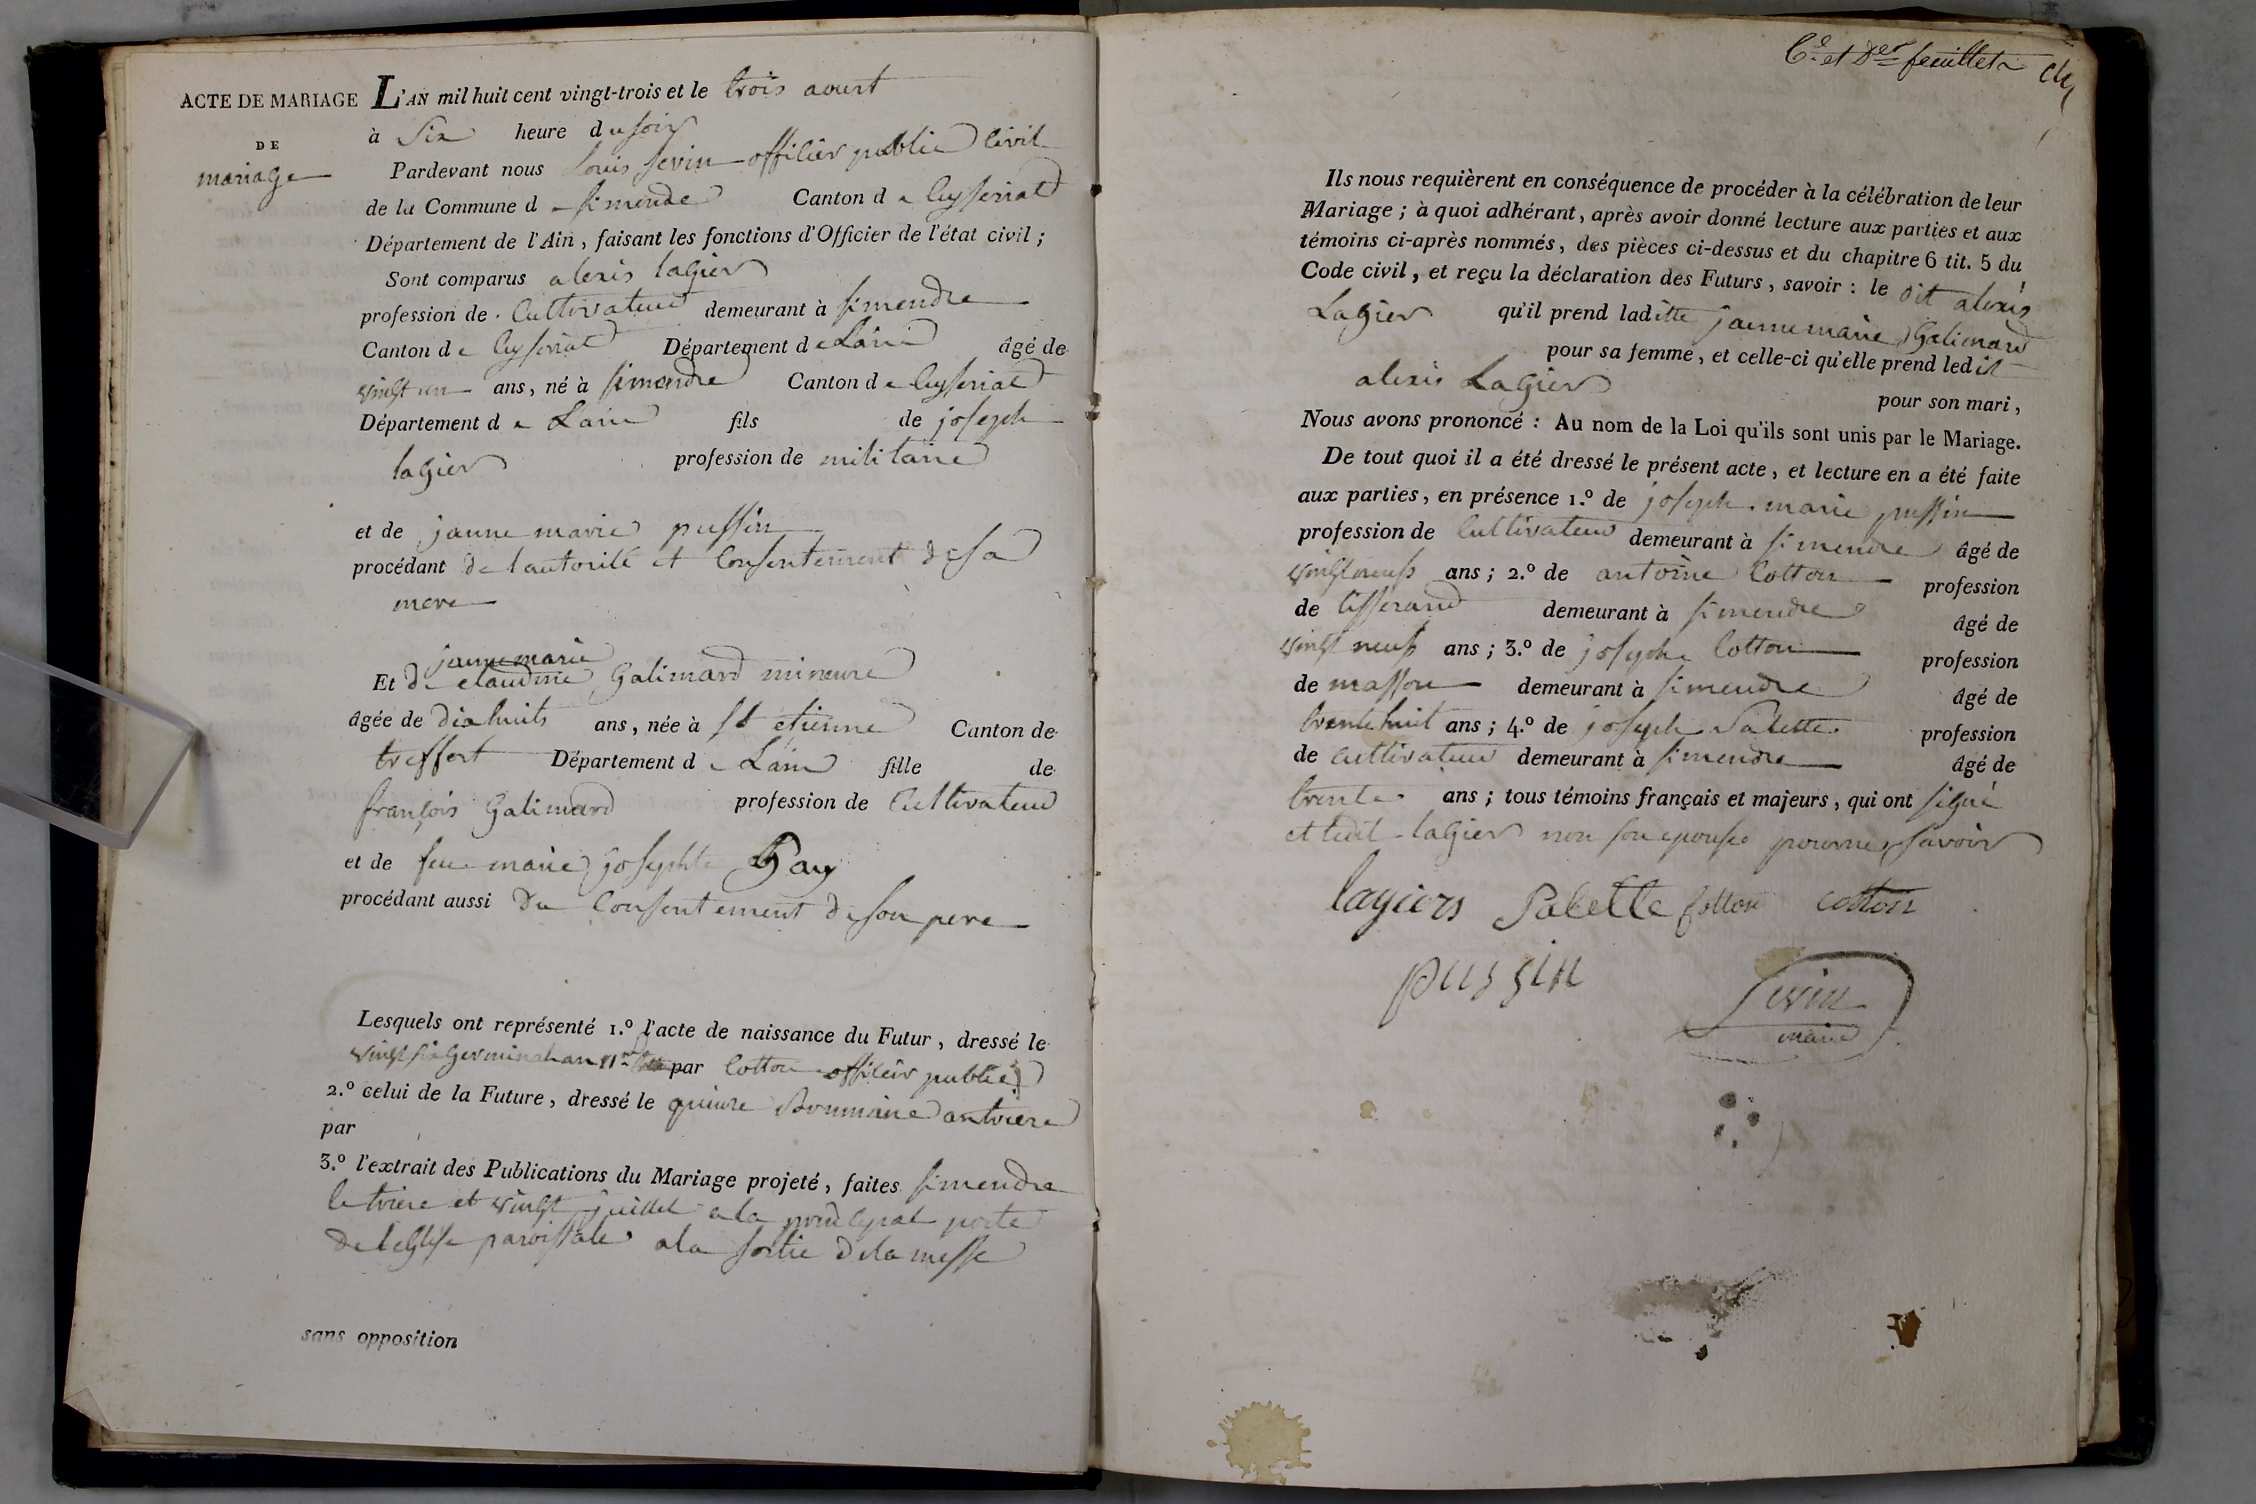 ACTE DE MARIAGE
DE
mariage
L'AN mil huit cent vingt-trois et le trois aoust
à Six heure du soir
Pardevant nous Louis Sevin officier public civil
de la Commune de Simendre Canton de Ceyseriat
Département de l'Ain, faisant les fonctions d'Officier de l'état civil;
Sont comparus alexis lagier
profession de Cultivateur demeurant à Simendre
Canton de Ceyseriat Département de Lain âgé de
vingt un ans, né à Simendre Canton de Ceyseriat
Département de Lain fils de joseph
lagier profession de militaire
et de janne marie pussin
procédant de lautorité et Consentement de sa
mere
janne marie
Et de claudine Galimard mineure
âgée de dix huits ans, née à St etienne Canton de
treffort Département de Lain fille de
françois Galimard profession de Cultivateur
et de feu marie josephte
procédant aussi du Consentement de son pere
Lesquels ont représenté 1.º l'acte de naissance du Futur, dressé le
vingt six Germinal an par Cotton officier public
2.º celui de la Future, dressé le quinze Brumaire an treize
par
3.º l'extrait des Publications du Mariage projeté, faites Simendre
le treize et vingt juillet a la principal porte
de leglise paroissale a la sortie de la messe
sans opposition
6.e et D.er feuillet
Ils nous requièrent en conséquence de procéder à la célébration de leur
Mariage; à quoi adhérant, après avoir donné lecture aux parties et aux
témoins ci-après nommés, des pièces ci-dessus et du chapitre 6 tit. 5 du
Code civil, et reçu la déclaration des Futurs, savoir: le dit alexis
Lagier qu'il prend laditte janne marie Galimard
pour sa femme, et celle-ci qu'elle prend ledit
alexis Lagier pour son mari,
Nous avons prononcé: Au nom de la Loi qu'ils sont unis par le Mariage.
De tout quoi il a été dressé le présent acte, et lecture en a été faite
aux parties, en présence 1.º de joseph marie pussin
profession de Cultivateur demeurant à Simendre âgé de
vingt neuf ans; 2.º de antoine Cotton profession
de tisserand demeurant à Simendre âgé de
vingt neuf ans; 3.º de joseph Cotton profession
de masson demeurant à Simendre âgé de
trente huit ans; 4.º de joseph Palette profession
de cultivateur demeurant à Simendre âgé de
trente ans; tous témoins français et majeurs, qui ont signé
et ledit lagier non son epouse pour ne savoir
lagiers Palette Cotton cotton
pussin
Sevin
maire